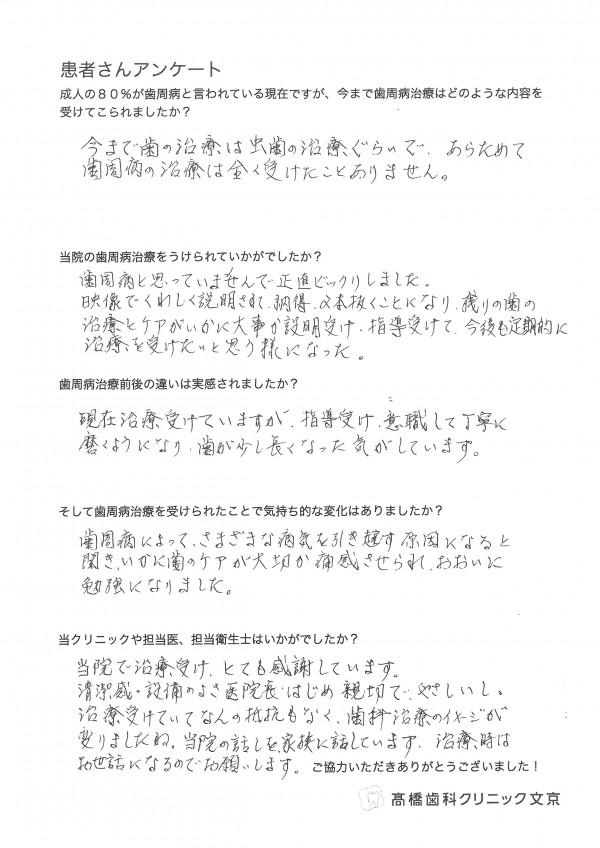 患者さんアンケート
成人の８０％が歯周病と言われている現在ですが、今まで歯周病治療はどのような内容を
受けてこられましたか？
今まで歯の治療は虫歯の治療ぐらいで、あらためて
歯周病の治療は全く受けたことありません。
当院の歯周病治療をうけられていかがでしたか？
歯周病と思っていませんで正直ビックリしました。
映像でくわしく説明され、納得、2本抜くことになり、残りの歯の
治療とケアがいかに大事か説明受け、指導受けて、今後も定期的に
治療を受けたいと思う様になった。
歯周病治療前後の違いは実感されましたか？
現在治療受けていますが、指導受け、意職して丁寧に
磨くようになり、歯が少し長くなった気がしています。
そして歯周病治療を受けられたことで気持ち的な変化はありましたか？
歯周病によって、さまざまな病気を引き起す原因になると
聞き、いかに歯のケアが大切か痛感させられ、おおいに
勉強になりました。
当クリニックや担当医、担当衛生士はいかがでしたか？
当院で治療受け、とても感謝しています。
清潔感・設備のよさ医院長はじめ親切で、やさしいし、
治療受けていてなんの抵抗もなく、歯科治療のイメージが
変りましたね。当院の話しを家族に話しています、治療時は
お世話になるのでお願いします。 ご協力いただきありがとうございました！
髙橋歯科クリニック文京